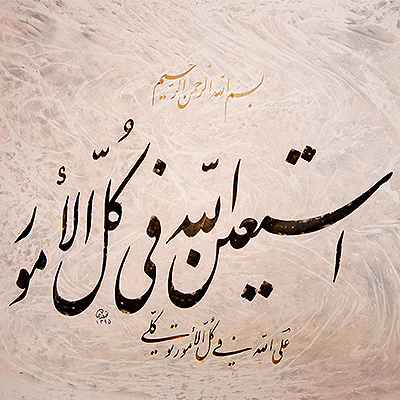 بسم الله الرحمن الرحیم
استعین الله فی کُلّ الأمور
۱۳۹۵
عَلَی الله فی کُلّ الأمور توکلی